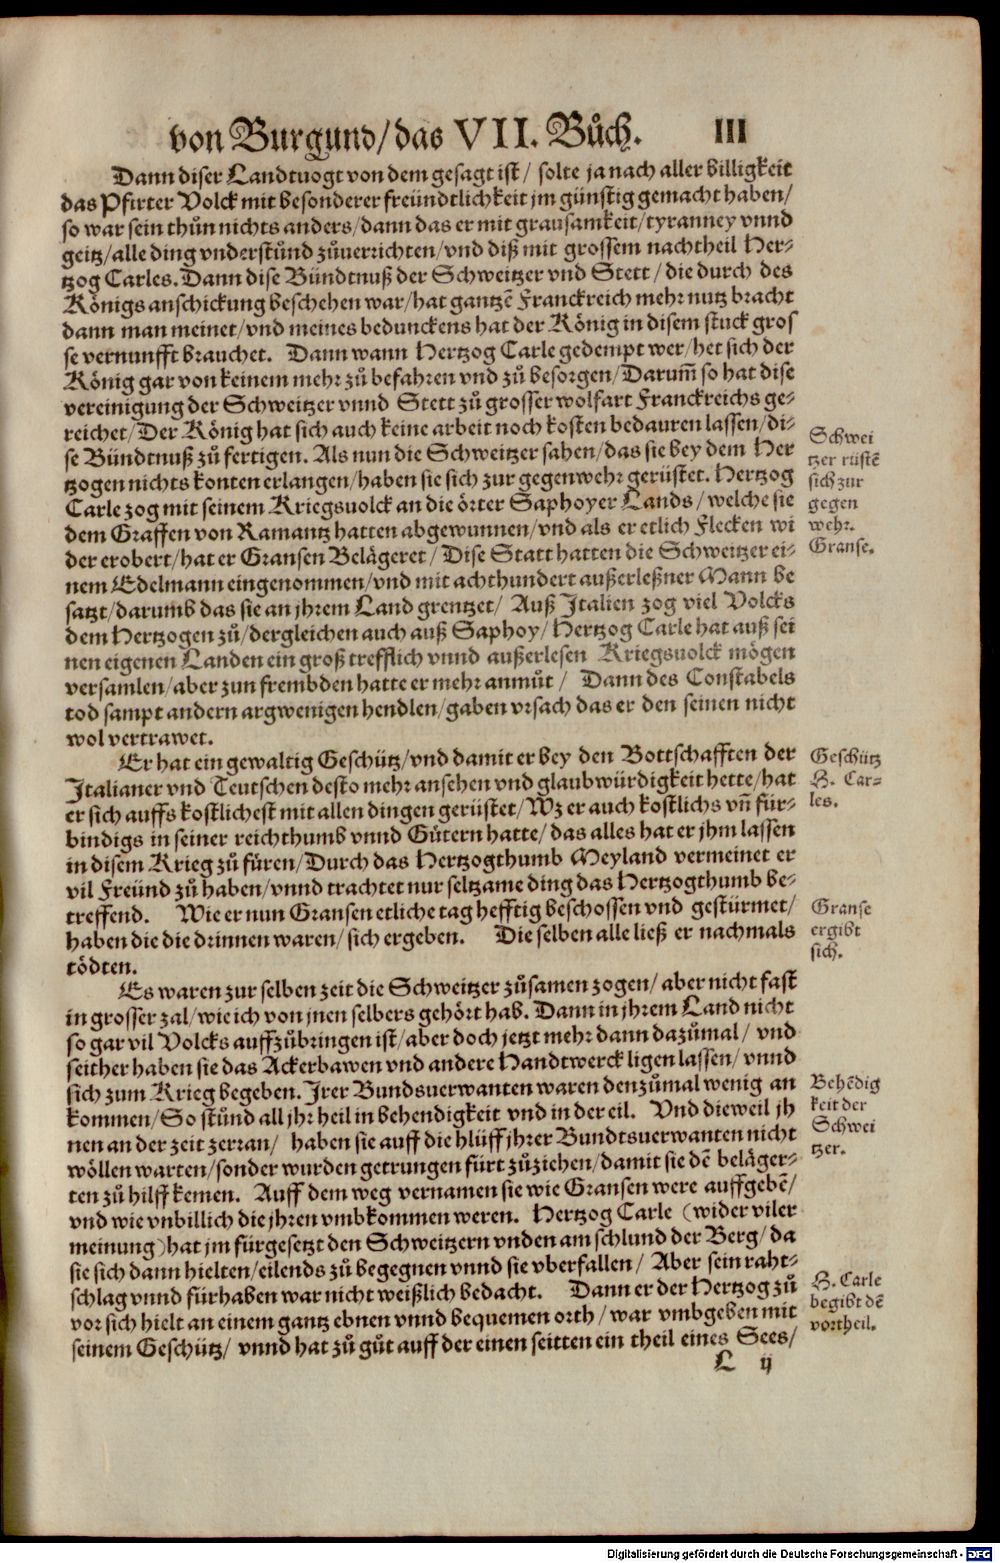 von Burgund/das VII. Bůch. III
Dann diser Landtuogt von dem gesagt ist/ solte ja nach aller billigkeit
das Pfirter Volck mit besonderer freündtlichkeit jm günstig gemacht haben/
so war sein thůn nichts anders/dann das er mit grausamkeit/tyranney vnnd
geitz/alle ding vnderstůnd zůuerrichten/vnd diß mit grossem nachtheil Her-
tzog Carles. Dann dise Bündtnuß der Schweitzer vnd Stett/die durch des
Königs anschickung beschehen war/hat gantzē Franckreich mehr nutz bracht
dann man meinet/vnd meines bedunckens hat der König in disem stuck gros
se vernunfft brauchet. Dann wann Hertzog Carle gedempt wer/het sich der
König gar von keinem mehr zů befahren vnd zů besorgen/Darum̃ so hat dise
vereinigung der Schweitzer vnnd Stett zů grosser wolfart Franckreichs ge-
reichet/Der König hat sich auch keine arbeit noch kosten bedauren lassen/di-
se Bündtnuß zů fertigen. Als nun die Schweitzer sahen/das sie bey dem Her
tzogen nichts konten erlangen/haben sie sich zur gegenwehr gerüstet. Hertzog
Carle zog mit seinem Kriegsuolck an die örter Saphoyer Lands/welche sie
dem Graffen von Ramantz hatten abgewunnen/vnd als er etlich Flecken wi
der erobert/hat er Gransen Belägeret/Dise Statt hatten die Schweitzer ei-
nem Edelmann eingenommen/vnd mit achthundert außerleßner Mann be
satzt/darumb das sie an jhrem Land grentzet/ Auß Italien zog viel Volcks
dem Hertzogen zů/dergleichen auch auß Saphoy/Hertzog Carle hat auß sei
nen eigenen Landen ein groß trefflich vnnd außerlesen Kriegsuolck mögen
versamlen/aber zun frembden hatte er mehr anmůt/ Dann des Constabels
tod sampt andern argwenigen hendlen/gaben vrsach das er den seinen nicht
wol vertrawet.
Er hat ein gewaltig Geschütz/vnd damit er bey den Bottschafften der
Italianer vnd Teutschen desto mehr ansehen vnd glaubwürdigkeit hette/hat
er sich auffs kostlichest mit allen dingen gerüstet/Wz er auch kostlichs vñ für-
bindigs in seiner reichthumb vnnd Gütern hatte/das alles hat er jhm lassen
in disem Krieg zů füren/Durch das Hertzogthumb Meyland vermeinet er
vil Freünd zů haben/vnnd trachtet nur seltzame ding das Hertzogthumb be-
treffend. Wie er nun Gransen etliche tag hefftig beschossen vnd gestürmet/
haben die die drinnen waren/sich ergeben. Die selben alle ließ er nachmals
tödten.
Es waren zur selben zeit die Schweitzer zůsamen zogen/aber nicht fast
in grosser zal/wie ich von jnen selbers gehört hab. Dann in jhrem Land nicht
so gar vil Volcks auffzůbringen ist/aber doch jetzt mehr dann dazůmal/ vnd
seither haben sie das Ackerbawen vnd andere Handtwerck ligen lassen/vnnd
sich zum Krieg begeben. Irer Bundsuerwanten waren denzůmal wenig an
kommen/So stůnd all jhr heil in behendigkeit vnd in der eil. Vnd dieweil jh
nen an der zeit zerran/ haben sie auff die hlüff jhrer Bundtsuerwanten nicht
wöllen warten/sonder wurden getrungen fürt zůziehen/damit sie dē beläger-
ten zů hilff kemen. Auff dem weg vernamen sie wie Gransen were auffgebē/
vnd wie vnbillich die jhren vmbkommen weren. Hertzog Carle (wider viler
meinung)hat jm fürgesetzt den Schweitzern vnden am schlund der Berg/da
sie sich dann hielten/eilends zů begegnen vnnd sie vberfallen/ Aber sein raht-
schlag vnnd fürhaben war nicht weißlich bedacht. Dann er der Hertzog zů
vor sich hielt an einem gantz ebnen vnnd bequemen orth/war vmbgeben mit
seinem Geschütz/ vnnd hat zů gůt auff der einen seitten ein theil eines Sees/
L ij
Schwei
tzer rüstē
sich zur
gegen
wehr.
Granse.
Geschütz
H. Car-
les.
Granse
ergibt
sich.
Behēdig
keit der
Schwei
tzer.
H. Carle
begibt dē
vortheil.
Digitalisierung gefördert durch die Deutsche Forschungsgemeinschaft - DFG